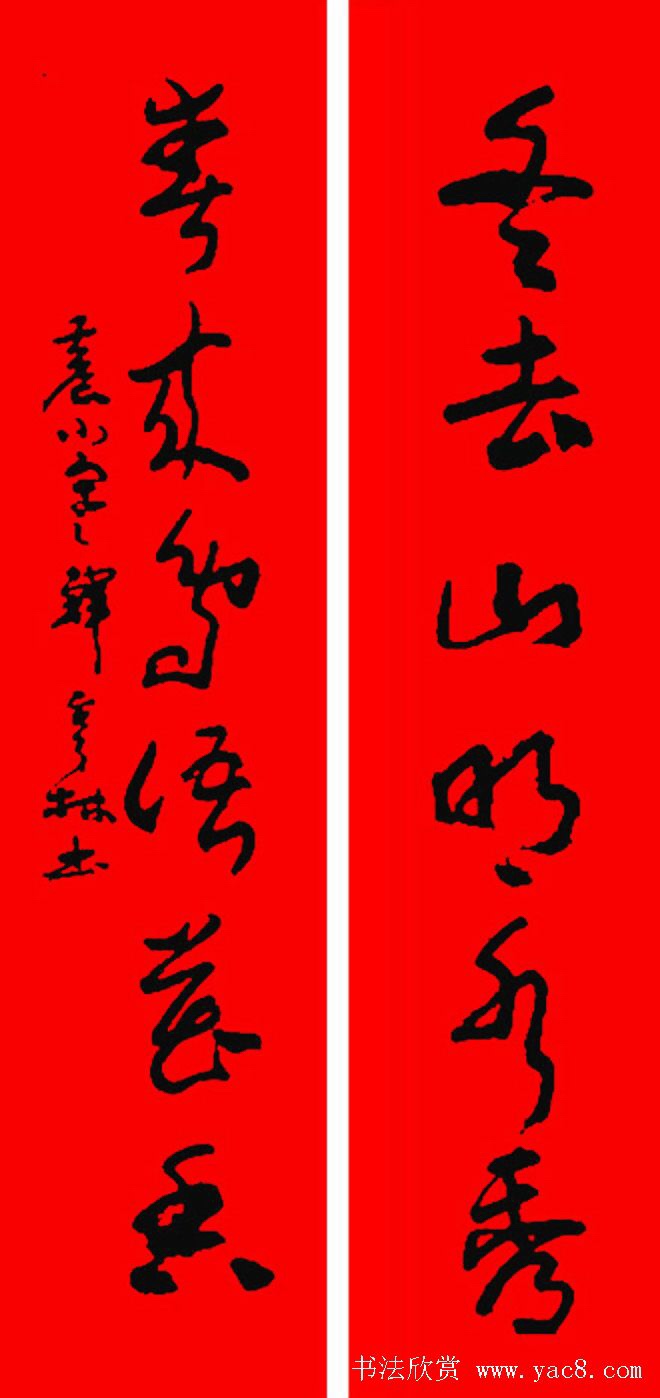 冬去山明水秀
春来鸟语花香
林书
书法欣赏 www.yac8.com